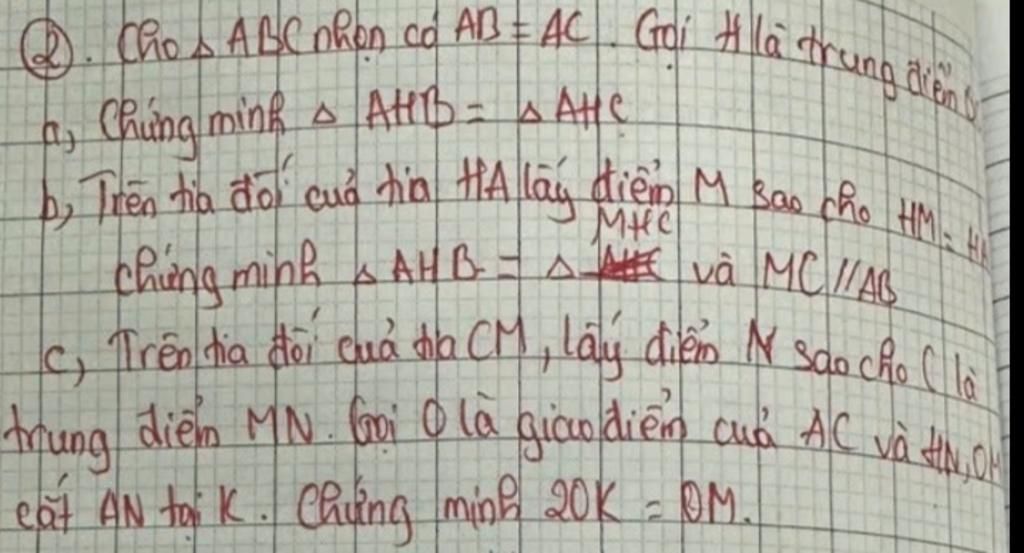 ②. Cho △ ABC nhọn có AB = AC. Gọi H là trung điểm
a, Chứng minh △ AHB = △ AHC
b, Trên tia đối cuả tia HA lấy điểm M sao cho HM = HA
chứng minh △ AHB = △ MHC và MC // AB
c, Trên tia đối cuả tia CM, lấy điểm N sao cho C là
trung điểm MN. Gọi O là giao điểm cuả AC và HN, OM
cắt AN tại K. Chứng minh 2OK = OM.